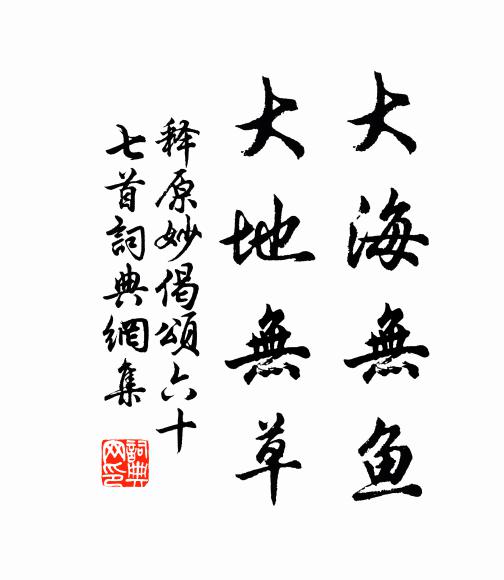 大海無鱼
大地無草
释原妙偈頌六十
七首詞典網集
詞典網印